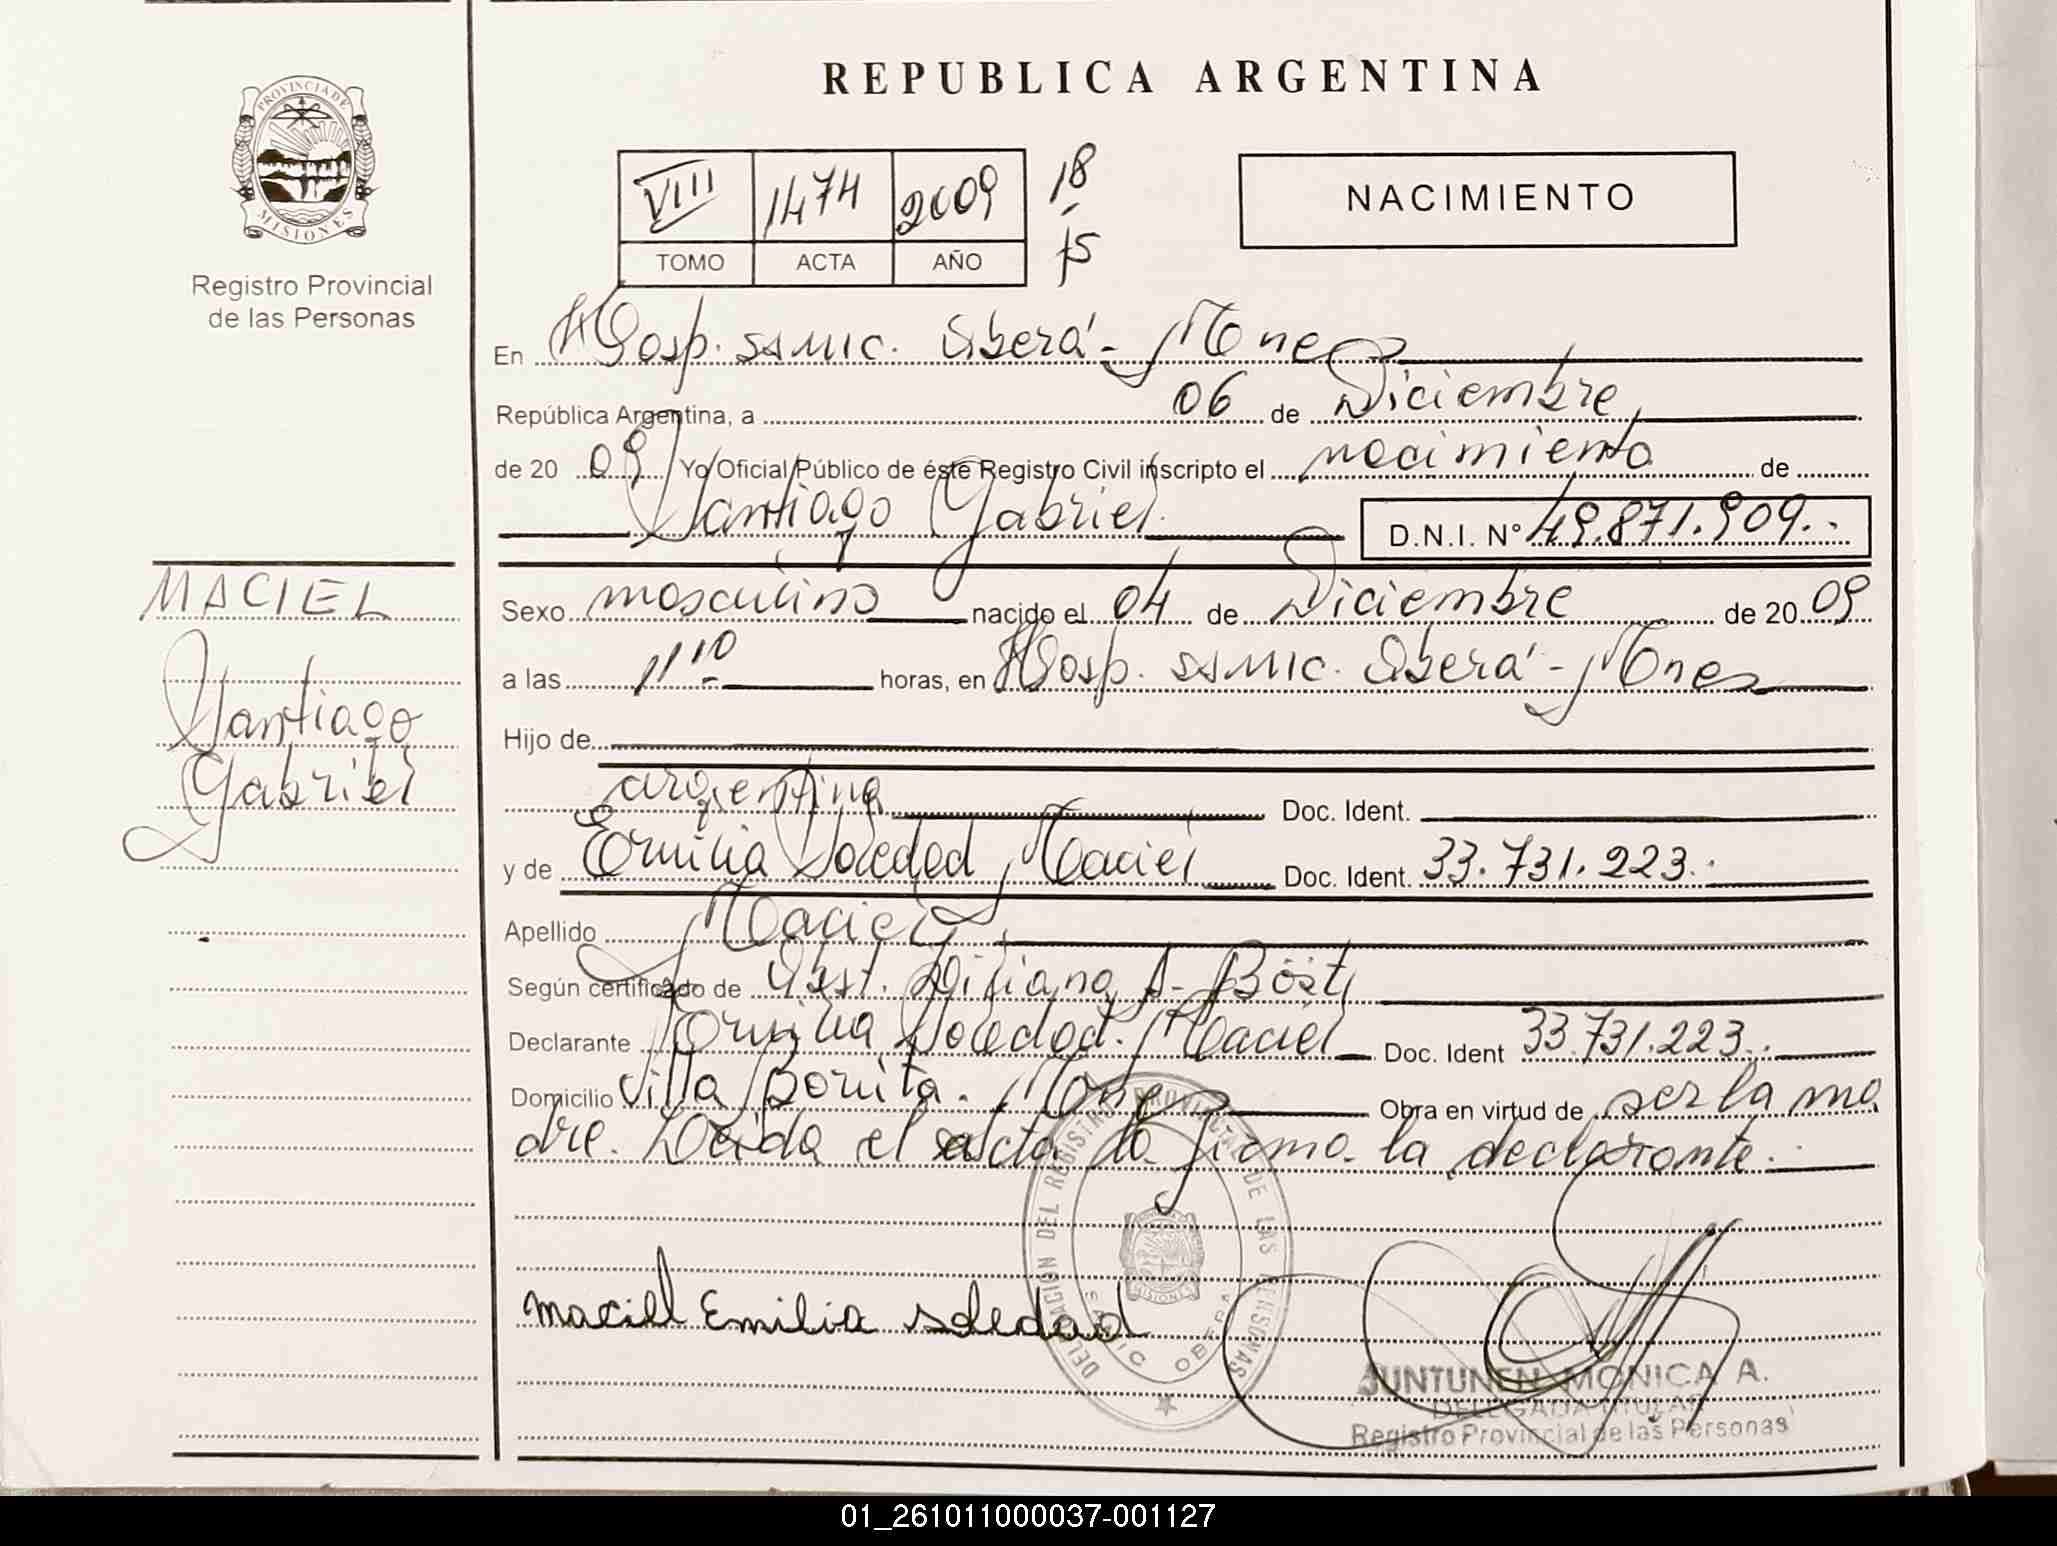 REPUBLICA ARGENTINA
PROVINCIA DE
MISIONES
Registro Provincial
de las Personas
VIII 1474 2009 18
TOMO ACTA AÑO 15
NACIMIENTO
En Hosp. SAMIC. Oberá - Mnes
República Argentina, a 06 de Diciembre
de 20 09 Yo Oficial Público de éste Registro Civil inscripto el nacimiento de
Santiago Gabriel. D.N.I. Nº 49.871.909..
MACIEL
Santiago
Gabriel
Sexo masculino nacido el 04 de Diciembre de 20 09
a las 11 10 horas, en Hosp. SAMIC. Oberá - Mnes
Hijo de
argentina Doc. Ident.
y de Emilia Soledad Maciel Doc. Ident. 33.731.223.
Apellido Maciel
Según certificado de Obst. A.
Declarante Emilia Soledad. Maciel Doc. Ident 33.731.223..
Domicilio Villa Bonita. Mnes Obra en virtud de ser la ma
dre. Leída el acta la firma la declarante.
DELEGACION DEL REGISTRO PROVINCIAL DE LAS PERSONAS
MISIONES
SAMIC OBERA
maciel Emilia soledad
JUNTUNEN MONICA A.
DELEGADA TITULAR
Registro Provincial de las Personas
01_261011000037-001127